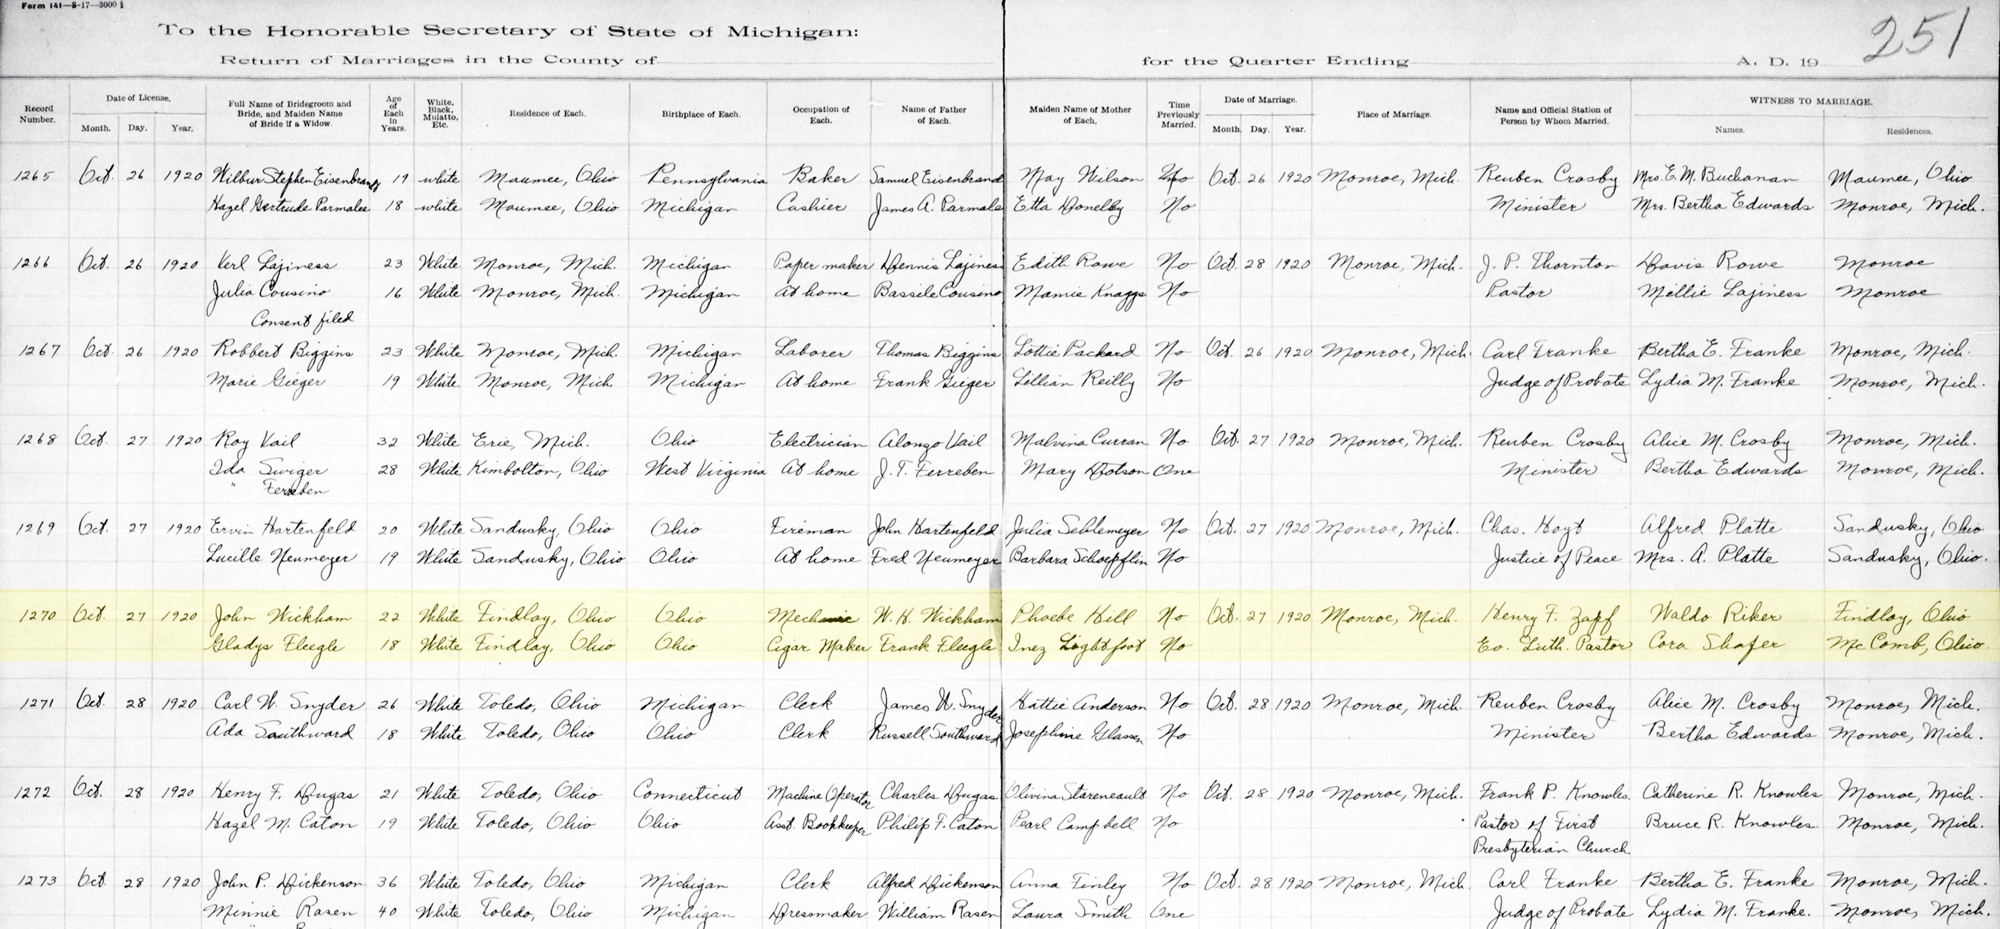 Form 141—8-17—3000
251
To the Honorable Secretary of State of Michigan:
Return of Marriages in the County of for the Quarter Ending A. D. 19
Record Number. Date of License. Month. Day. Year. Full Name of Bridegroom and Bride, and Maiden Name of Bride if a Widow. Age of Each in Years. White, Black, Mulatto, Etc. Residence of Each. Birthplace of Each. Occupation of Each. Name of Father of Each. Maiden Name of Mother of Each. Time Previously Married. Date of Marriage. Month. Day. Year. Place of Marriage. Name and Official Station of Person by Whom Married. WITNESS TO MARRIAGE. Names. Residences.
1265 Oct. 26 1920 Wilbur Stephen Eisenbrand 19 white Maumee, Ohio Pennsylvania Baker Samuel Eisenbrand May Wilson No Oct. 26 1920 Monroe, Mich. Reuben Crosby Mrs. E. M. Buchanan Maumee, Ohio
Hazel Gertrude Parmalee 18 white Maumee, Ohio Michigan Cashier James A. Parmale Etta Donelby No Minister Mrs. Bertha Edwards Monroe, Mich.
1266 Oct. 26 1920 Verl Lajiness 23 White Monroe, Mich. Michigan Paper maker Dennis Lajiness Edith Rowe No Oct. 28 1920 Monroe, Mich. J. P. Thornton Davis Rowe Monroe
Julia Cousino 16 White Monroe, Mich. Michigan At home Bassile Cousino Mamie Knaggs No Pastor Mellie Lajiness Monroe
Consent filed
1267 Oct. 26 1920 Robbert Biggins 23 White Monroe, Mich. Michigan Laborer Thomas Biggins Lottie Packard No Oct. 26 1920 Monroe, Mich. Carl Franke Bertha E. Franke Monroe, Mich.
Marie Gieger 19 White Monroe, Mich Michigan At home Frank Gieger Lillian Reilly No Judge of Probate Lydia M. Franke Monroe, Mich.
1268 Oct. 27 1920 Roy Vail 32 White Erie, Mich. Ohio Electrician Alonzo Vail Malvina Curran No Oct. 27 1920 Monroe, Mich. Reuben Crosby Alice M. Crosby Monroe, Mich.
Ida Swiger 28 White Kimbolton, Ohio West Virginia At home J. T. Ferreben Mary Dotson One Minister Bertha Edwards Monroe, Mich.
" Ferreben
1269 Oct. 27 1920 Ervin Hartenfeld 20 White Sandusky, Ohio Ohio Fireman John Hartenfeld Julia Sehlemeyer No Oct. 27 1920 Monroe, Mich. Chas. Hoyt Alfred Platte Sandusky, Ohio
Lucille Neumeyer 19 White Sandusky, Ohio Ohio At home Fred Neumeyer Barbara Schoepflin No Justice of Peace Mrs. A. Platte Sandusky, Ohio.
1270 Oct. 27 1920 John Wickham 22 White Findlay, Ohio Ohio Mechanic W. H. Wickham Phoebe Hill No Oct. 27 1920 Monroe, Mich. Henry F. Zapf Waldo Riker Findlay, Ohio
Gladys Fleegle 18 White Findlay, Ohio Ohio Cigar Maker Frank Fleegle Inez Lightfoot No Ev. Luth. Pastor Cora Shafer McComb, Ohio.
1271 Oct. 28 1920 Carl W. Snyder 26 White Toledo, Ohio Michigan Clerk James W. Snyder Hattie Anderson No Oct. 28 1920 Monroe, Mich. Reuben Crosby Alice M. Crosby Monroe, Mich.
Ada Southward 18 White Toledo, Ohio Ohio Clerk Russell Southward Josephine Glassen No Minister Bertha Edwards Monroe, Mich.
1272 Oct. 28 1920 Henry F. Dugas 21 White Toledo, Ohio Connecticut Machine Operator Charles Dugas Olivina Stareneault No Oct. 28 1920 Monroe, Mich. Frank P. Knowles. Catherine R. Knowles Monroe, Mich.
Hazel M. Caton 19 White Toledo, Ohio Ohio Asst. Bookkeeper Philip F. Caton Pearl Campbell No Pastor of First Bruce R. Knowles. Monroe, Mich.
Presbyterian Church
1273 Oct. 28 1920 John P. Dickenson 36 White Toledo, Ohio Michigan Clerk Alfred Dickenson Anna Finley No Oct. 28 1920 Monroe, Mich. Carl Franke Bertha E. Franke Monroe, Mich.
Minnie Rasen 40 White Toledo, Ohio Michigan Dressmaker William Rasen Laura Smith One Judge of Probate Lydia M. Franke. Monroe, Mich.